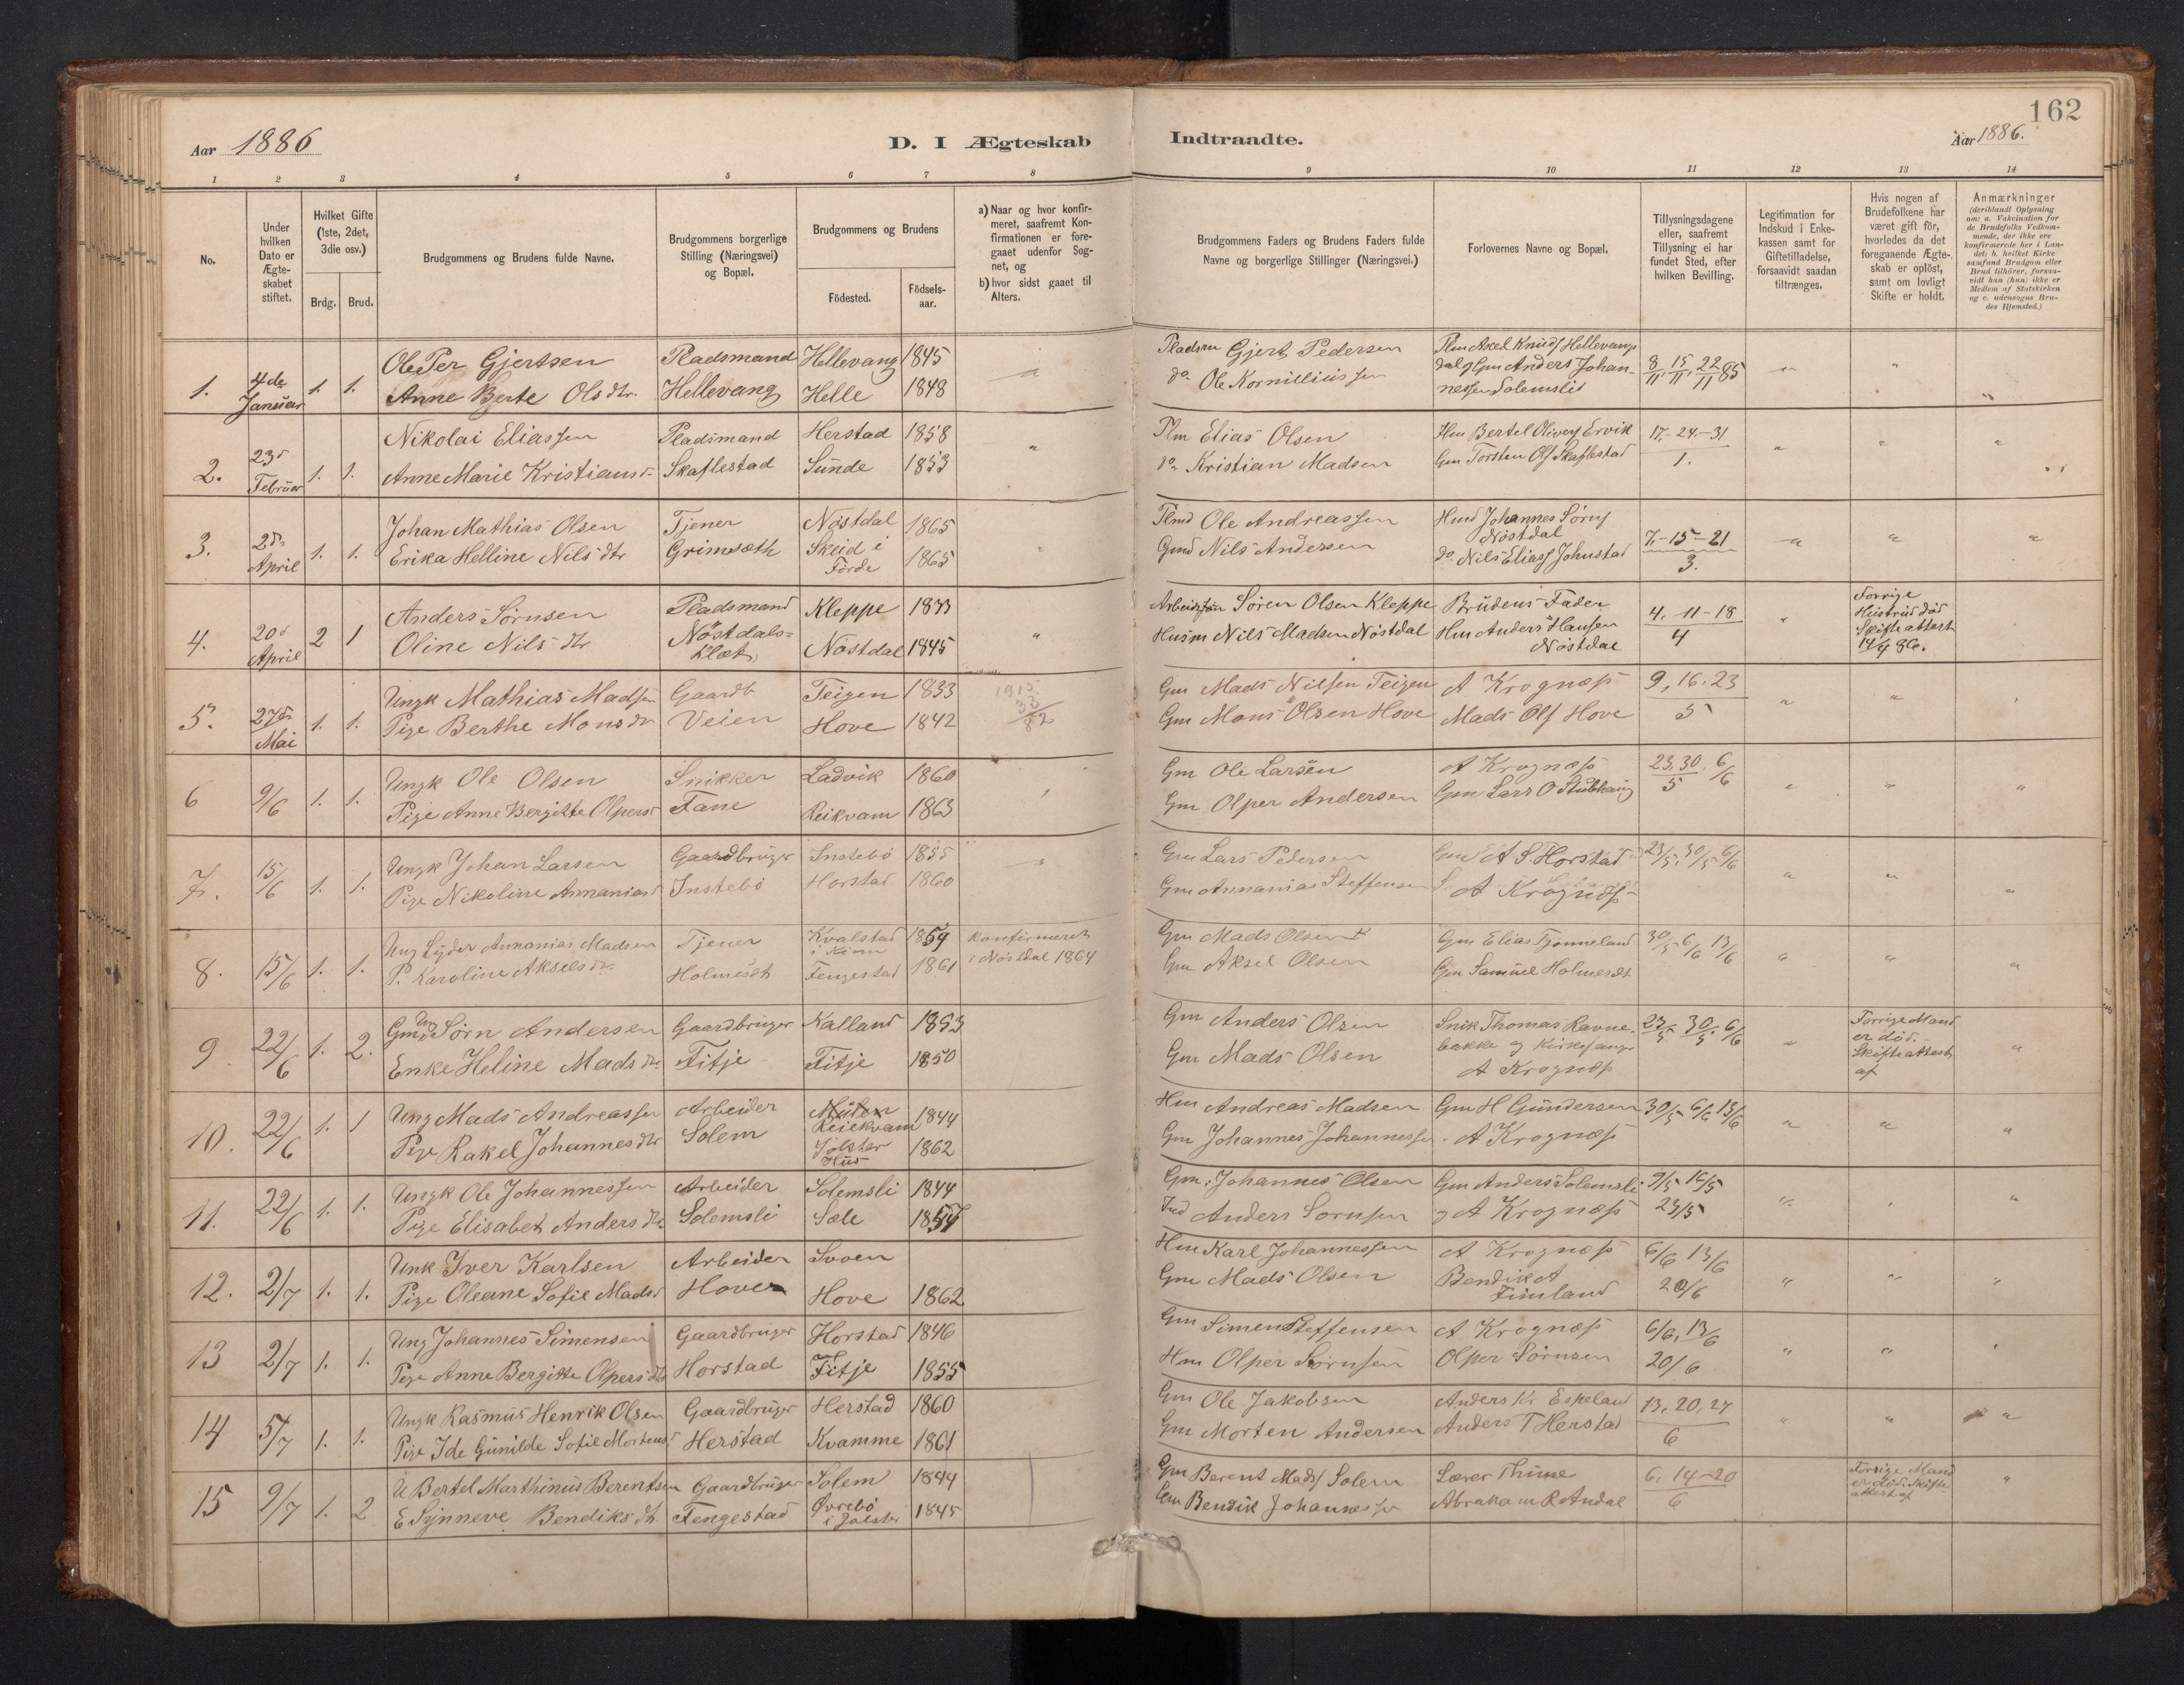 162
Aar 1886
D. I Ægteskab
Indtraadte.
Aar 1886.
1 2 3 4 5 6 7 8 9 10 11 12 13 14
No.
Under hvilken Dato er Ægteskabet stiftet.
Hvilket Gifte (1ste, 2det, 3die osv.)
Brdg. Brud.
Brudgommens og Brudens fulde Navne.
Brudgommens borgerlige Stilling (Næringsvei) og Bopæl.
Brudgommens og Brudens
Födested.
Födselsaar.
a) Naar og hvor konfirmeret, saafremt Konfirmationen er foregaaet udenfor Sognet, og
b) hvor sidst gaaet til Alters.
Brudgommens Faders og Brudens Faders fulde Navne og borgerlige Stillinger (Næringsvei.)
Forlovernes Navne og Bopæl.
Tillysningsdagene eller, saafremt Tillysning ei har fundet Sted, efter hvilken Bevilling.
Legitimation for Indskud i Enkekassen samt for Giftetilladelse, forsaavidt saadan tiltrænges.
Hvis nogen af Brudefolkene har været gift för, hvorledes da det foregaaende Ægteskab er oplöst, samt om lovligt Skifte er holdt.
Anmærkninger (deriblandt Oplysning om: a. Vakcination for de Brudefolks Vedkommende, der ikke ere konfirmerede her i Landet; b. hvilket Kirkesamfund Brudgom eller Brud tilhörer, forsaavidt han (hun) ikke er Medlem af Statskirken og c. udensogns Brudes Hjemsted.)
1. 4de Januar 1. 1. Ole Per Gjertsen Pladsmand Hellevang 1845 " Pladsm Gjert Pedersen Plm Axel Knuds Hellevang
Anne Berte Olsdtr. Hellevang Helle 1848 do Ole Kornilliussen dal og Gm Anders Johannessen Solemsli 8/11, 15/11, 22/11 85 " " "
2. 23d Februar 1. 1. Nikolai Eliassen Pladsmand Herstad 1858 " Plm Elias Olsen Hm Bertel Olivers Ervik 17.-24.-31
Anne Marie Kristiansd. Skaflestad Sunde 1853 do Kristian Madsen Gm Torsten Ols Skaflestad 1. " " "
3. 2d April 1. 1. Johan Mathias Olsen Tjener Nöstdal 1865 " Plmd Ole Andreassen Hmd Johannes Sörns Nöstdal 7-15-21
Erika Helline Nilsdtr Grimsæth Skeid i Förde 1865 Gmd Nils Andersen do Nils Elias Johnstad 3. " " "
4. 20d April 2 1 Anders Sörnsen Pladsmand Kleppe 1833 Arbeidsm Sören Olsen Kleppe Brudens Fader 4.-11-18 Forrige Hustru död
Oline Nils dtr Nöstdals-klæt Nöstdal 1845 " Husm Nils Madsen Nöstdal Hm Anders Hansen Nöstdal 4 " Skifteattest 14/4 86.
5. 27d Mai 1. 1. Ungk Mathias Madsen Gaardb Teigen 1833 1915 33 82 Gm Mads Nilsen Teigen A Krognæss 9, 16. 23
Pige Berthe Monsdtr Veien Hove 1842 Gm Mons Olsen Hove Mads Ols Hove 5 " "
6 9/6 1. 1. Ungk Ole Olsen Snikker Ladvik 1860 Gm Ole Larsen A Krognæss 23,30/5 6/6
Pige Anne Bergitte Olpersd Fane Reikvam 1863 Gm Olper Andersen Gm Lars O Stubhaug " " "
7. 15/6 1. 1. Ungk Johan Larsen Gaardbruger Instebö 1855 " Gm Lars Pedersen Gm A S. Horstad 23/5, 30/5 6/6
Pige Nikoline Annaniasd Instebö Horstad 1860 Gm Annanias Steffensen A Krognæss " " "
8. 15/6 1. 1. Ung Lyder Annanias Madsen Tjener Kvalstad i Kinn 1859 konfirmeret i Nöstdal 1864 Gm Mads Olsen Gm Elias Tjönneland 30/5 6/6 13/6
P. Karoline Akselsdtr. Holmesæt Fengestad 1861 Gm Aksel Olsen Gm Samuel Holmesæt " " "
9 22/6 1. 2. Gm Ung Sörn Andersen Gaardbruger Kalland 1853 Gm Anders Olsen Snik Thomas Ravnebakke og Kirkesanger A Krognæss 23/5 30/5 6/6 Forrige Mand er död. Skifteattest af
Enke Heline Mads dtr. Fitje Fitje 1850 Gm Mads Olsen " "
10. 22/6 1. 1 Ung Mads Andreassen Arbeider Reiekvam 1844 Hm Andreas Madsen Gm H Gundersen 30/5 6/6 13/6
Pige Rakel Johannesdtr Solem Jölster Hus 1862 Gm Johannes Johannessen A Krognæss " " "
11. 22/6 1. 1. Ungk Ole Johannessen Arbeider Solemsli 1844 Gm. Johannes Olsen Gm Anders Solemsli 9/5 16/5
Pige Elisabet Andersdtr Solemsli Sæle 1857 Ind Anders Sornsen og A Krognæss 23/5 " "
12. 2/7 1. 1. Unk Iver Karlsen Arbeider Svoen Hm Karl Johannessen A Krognæss 6/6 13/6
Pige Oleane Sofie Madsd Hoven Hove 1862 Gm Mads Olsen Bendik A Fimland 20/6 " " "
13 2/7 1. 1. Ung Johannes Simensen Gaardbruger Horstad 1846 Gm Simen Steffensen A Krognæss 6/6, 13/6
Pige Anne Bergitte Olpersdtr Horstad Fitje 1855 Hm Olper Sörnsen Olper Sörnsen 20/6 " "
14 5/7 1. 1. Ungk Rasmus Henrik Olsen Gaardbruger Herstad 1860 Gm Ole Jakobsen Anders Kr Espeland 13, 20, 27
Pige Ide Gunilde Sofie Mortensd Herstad Kvamme 1861 Gm Morten Andersen Anders T Herstad 6 " " "
15 9/7 1. 2 U Bertel Marthinus Berentsen Gaardbruger Solem 1844 Gm Berent Mads Solem Lærer Thune 6. 14-20 Forrige Mand er död. Skifteattest af "
E Synneve Bendiksdtr. Fengestad Övrebö i Jölster 1845 Gm Bendik Johannessen Abraham R Andal 6